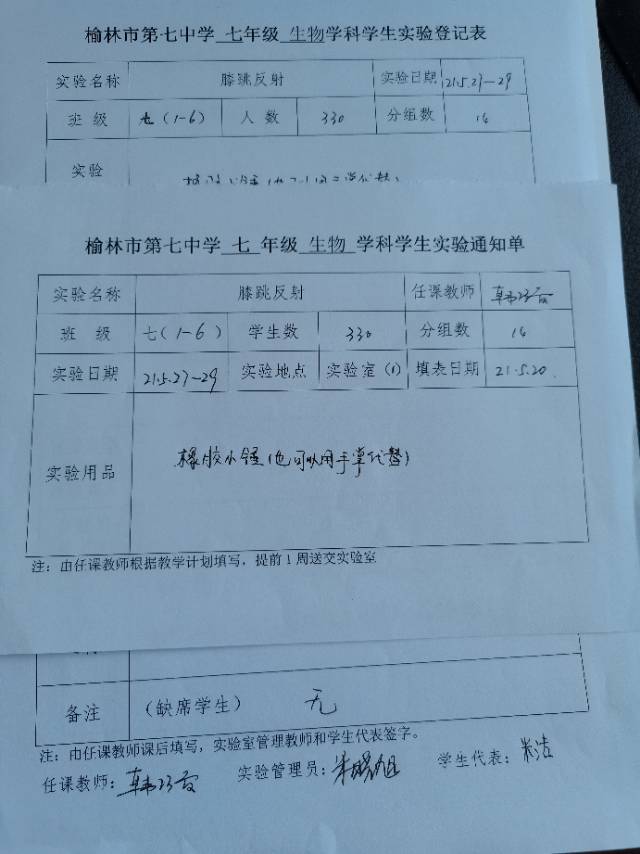 榆林市第七中学 七年级 生物学科学生实验登记表
实验名称 膝跳反射 实验日期 21.5.27-29
班 级 七(1-6) 人 数 330 分组数 14
实验
榆林市第七中学 七 年级 生物 学科学生实验通知单
实验名称 膝跳反射 任课教师
班 级 七(1-6) 学生数 330 分组数 14
实验日期 21.5.27-29 实验地点 实验室(1) 填表日期 21.5.20.
实验用品 橡胶小锤(也可以用手掌代替)
注：由任课教师根据教学计划填写，提前1周送交实验室
备注 (缺席学生) 无
注：由任课教师课后填写，实验室管理教师和学生代表签字。
任课教师： 实验管理员： 学生代表：